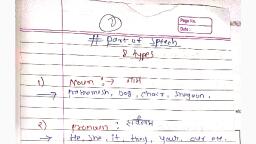 Page No.
Date:
# part of speech
8 types
1) Noun :→ नाम
→ Prathmesh, Dog, chair, Shegaon.
2) pronoun : सर्वनाम
→ He, she, it, they, your, our